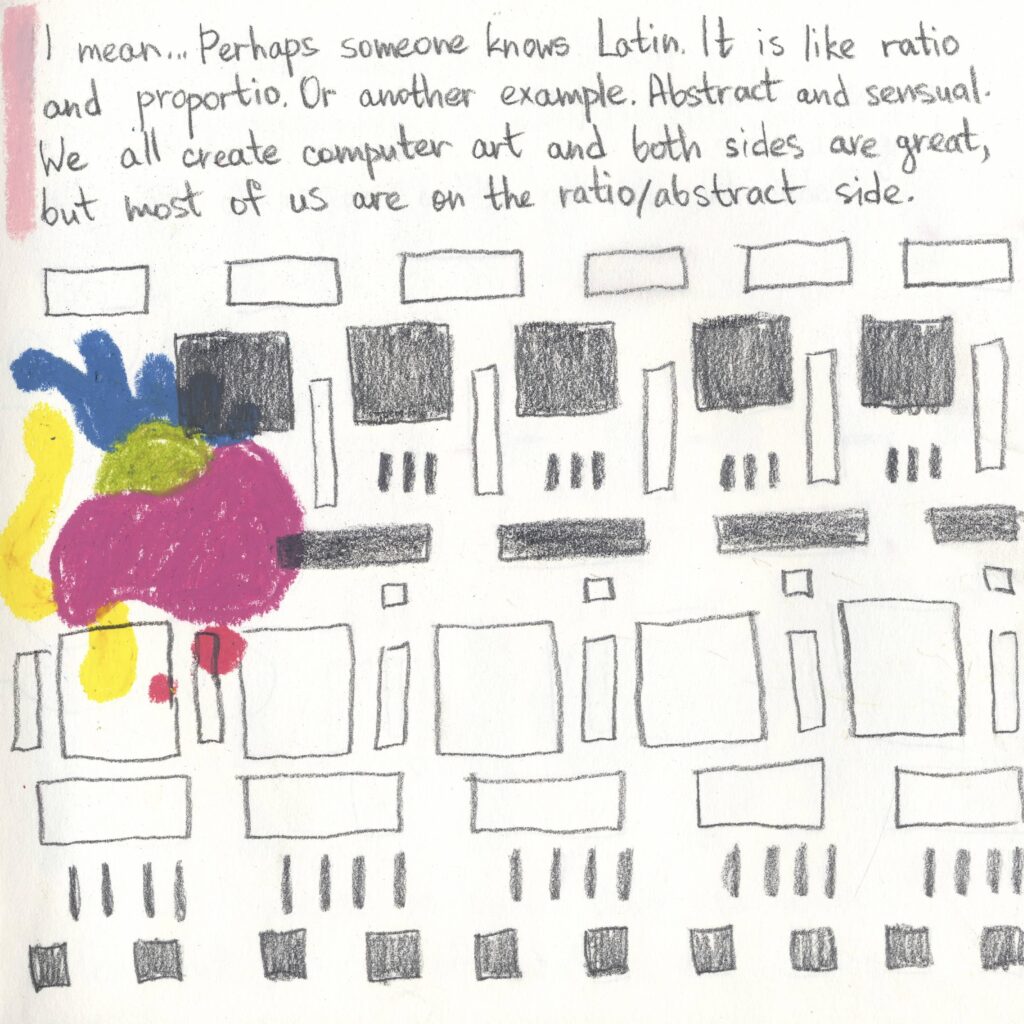 I mean... Perhaps someone knows Latin. It is like ratio
and proportio. Or another example. Abstract and sensual.
We all create computer art and both sides are great,
but most of us are on the ratio/abstract side.